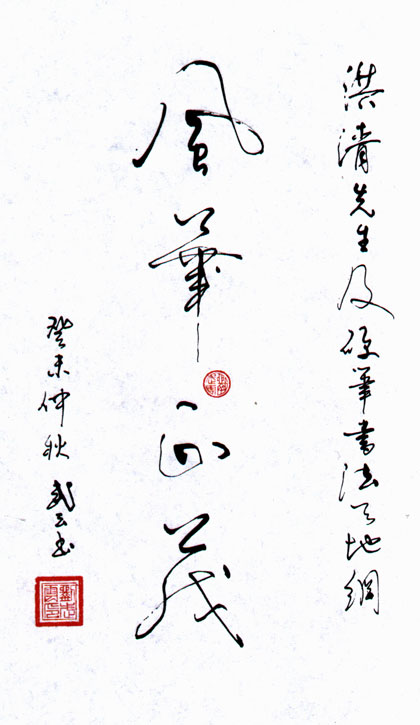 洪清先生及硬筆書法天地網
風華正茂
癸未仲秋 武云書